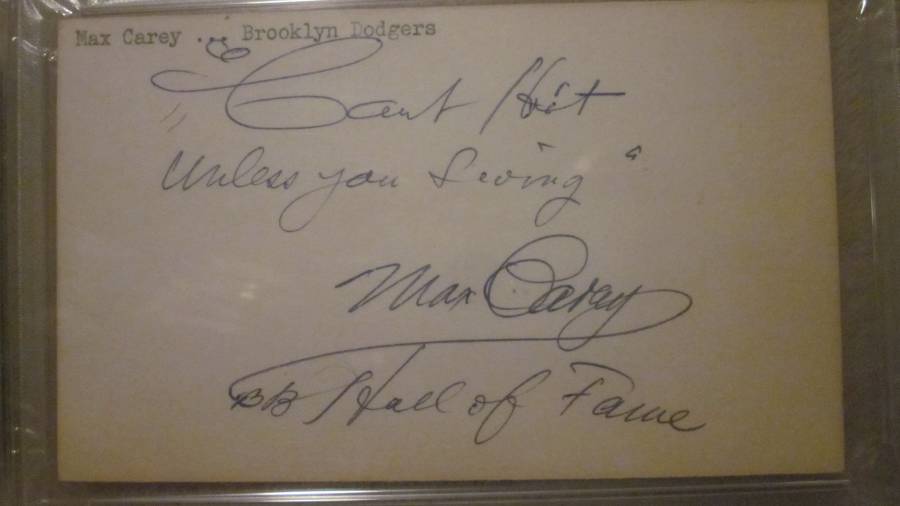 Max Carey ... Brooklyn Dodgers
"Cant Hit
Unless you Swing"
Max Carey
BB Hall of Fame